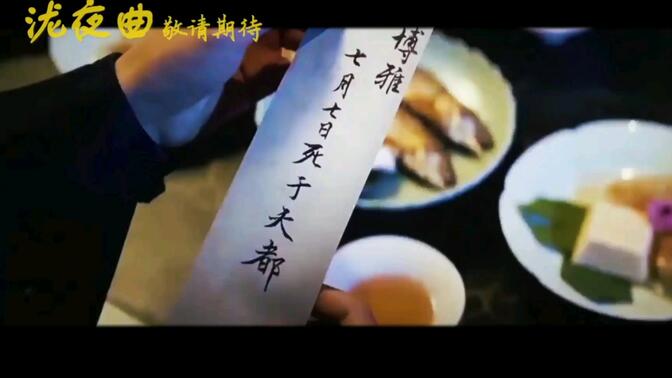 泷夜曲 敬请期待
博雅
七月七日死于天都